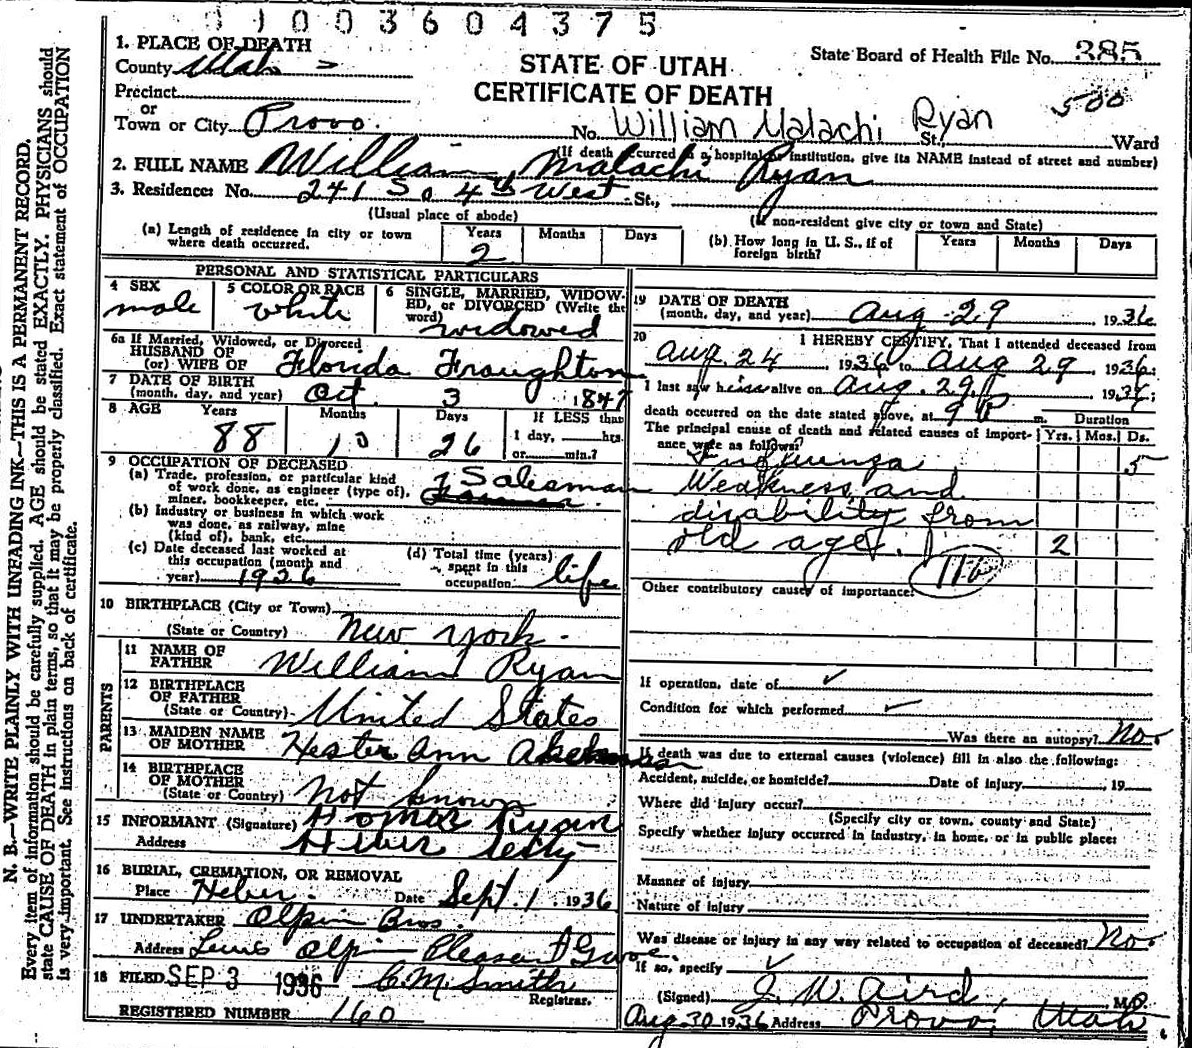 01003604375
1. PLACE OF DEATH
County Utah
Precinct
or
Town or City Provo.
STATE OF UTAH
CERTIFICATE OF DEATH
State Board of Health File No. 385
500
No. William Malachi Ryan St., Ward
(If death occurred in a hospital or institution, give its NAME instead of street and number)
2. FULL NAME William Malachi Ryan
3. Residence: No. 241 So 4th West St.,
(Usual place of abode)
(If non-resident give city or town and State)
(a) Length of residence in city or town where death occurred.
Years Months Days
2
(b) How long in U. S., if of foreign birth?
Years Months Days
PERSONAL AND STATISTICAL PARTICULARS
4 SEX
male
5 COLOR OR RACE
white
6 SINGLE, MARRIED, WIDOWED, or DIVORCED (Write the word)
widowed
6a If Married, Widowed, or Divorced
HUSBAND OF
(or) WIFE OF Florida Froughton
7 DATE OF BIRTH
(month, day, and year) Oct. 3 1847
8 AGE Years Months Days If LESS than
88 10 26 1 day, hrs.
or min.?
9 OCCUPATION OF DECEASED
(a) Trade, profession, or particular kind
of work done, as engineer (type of), Salesman
miner, bookkeeper, etc.
(b) Industry or business in which work
was done, as railway, mine
(kind of), bank, etc.
(c) Date deceased last worked at
this occupation (month and
year) 1926
(d) Total time (years)
spent in this
occupation life
10 BIRTHPLACE (City or Town)
(State or Country) New York.
PARENTS
11 NAME OF
FATHER William Ryan
12 BIRTHPLACE
OF FATHER
(State or Country) United States
13 MAIDEN NAME
OF MOTHER Hester Ann
14 BIRTHPLACE
OF MOTHER
(State or Country) Not known
15 INFORMANT (Signature) Homer Ryan
Address Heber City
16 BURIAL, CREMATION, OR REMOVAL
Place Heber. Date Sept. 1. 1936
17 UNDERTAKER Olpin Bros.
Address Lewis Olpin Pleasant Grove.
18 FILED SEP 3 1936 C. M. Smith
Registrar.
REGISTERED NUMBER 160
19 DATE OF DEATH
(month, day, and year) Aug - 29 1936
20 I HEREBY CERTIFY, That I attended deceased from
Aug. 24 1936, to Aug 29 1936;
I last saw him alive on Aug. 29 1936;
death occurred on the date stated above, at 9 P m.
Duration
The principal cause of death and related causes of importance were as follows:
Yrs. Mos. Ds.
Influenza 5
Weakness and
disability from
old age. 2
116
Other contributory causes of importance:
If operation, date of ✓
Condition for which performed ✓
Was there an autopsy? No.
If death was due to external causes (violence) fill in also the following:
Accident, suicide, or homicide? Date of injury , 19
Where did injury occur?
(Specify city or town, county and State)
Specify whether injury occurred in industry, in home, or in public place:
Manner of injury
Nature of injury
Was disease or injury in any way related to occupation of deceased? No.
If so, specify ✓
(Signed) J. W. Aird, M. D.
Aug. 30 1936 Address Provo, Utah
N. B.—WRITE PLAINLY WITH UNFADING INK—THIS IS A PERMANENT RECORD.
Every item of information should be carefully supplied. AGE should be stated EXACTLY. PHYSICIANS should
state CAUSE OF DEATH in plain terms, so that it may be properly classified. Exact statement of OCCUPATION
is very important. See instructions on back of certificate.